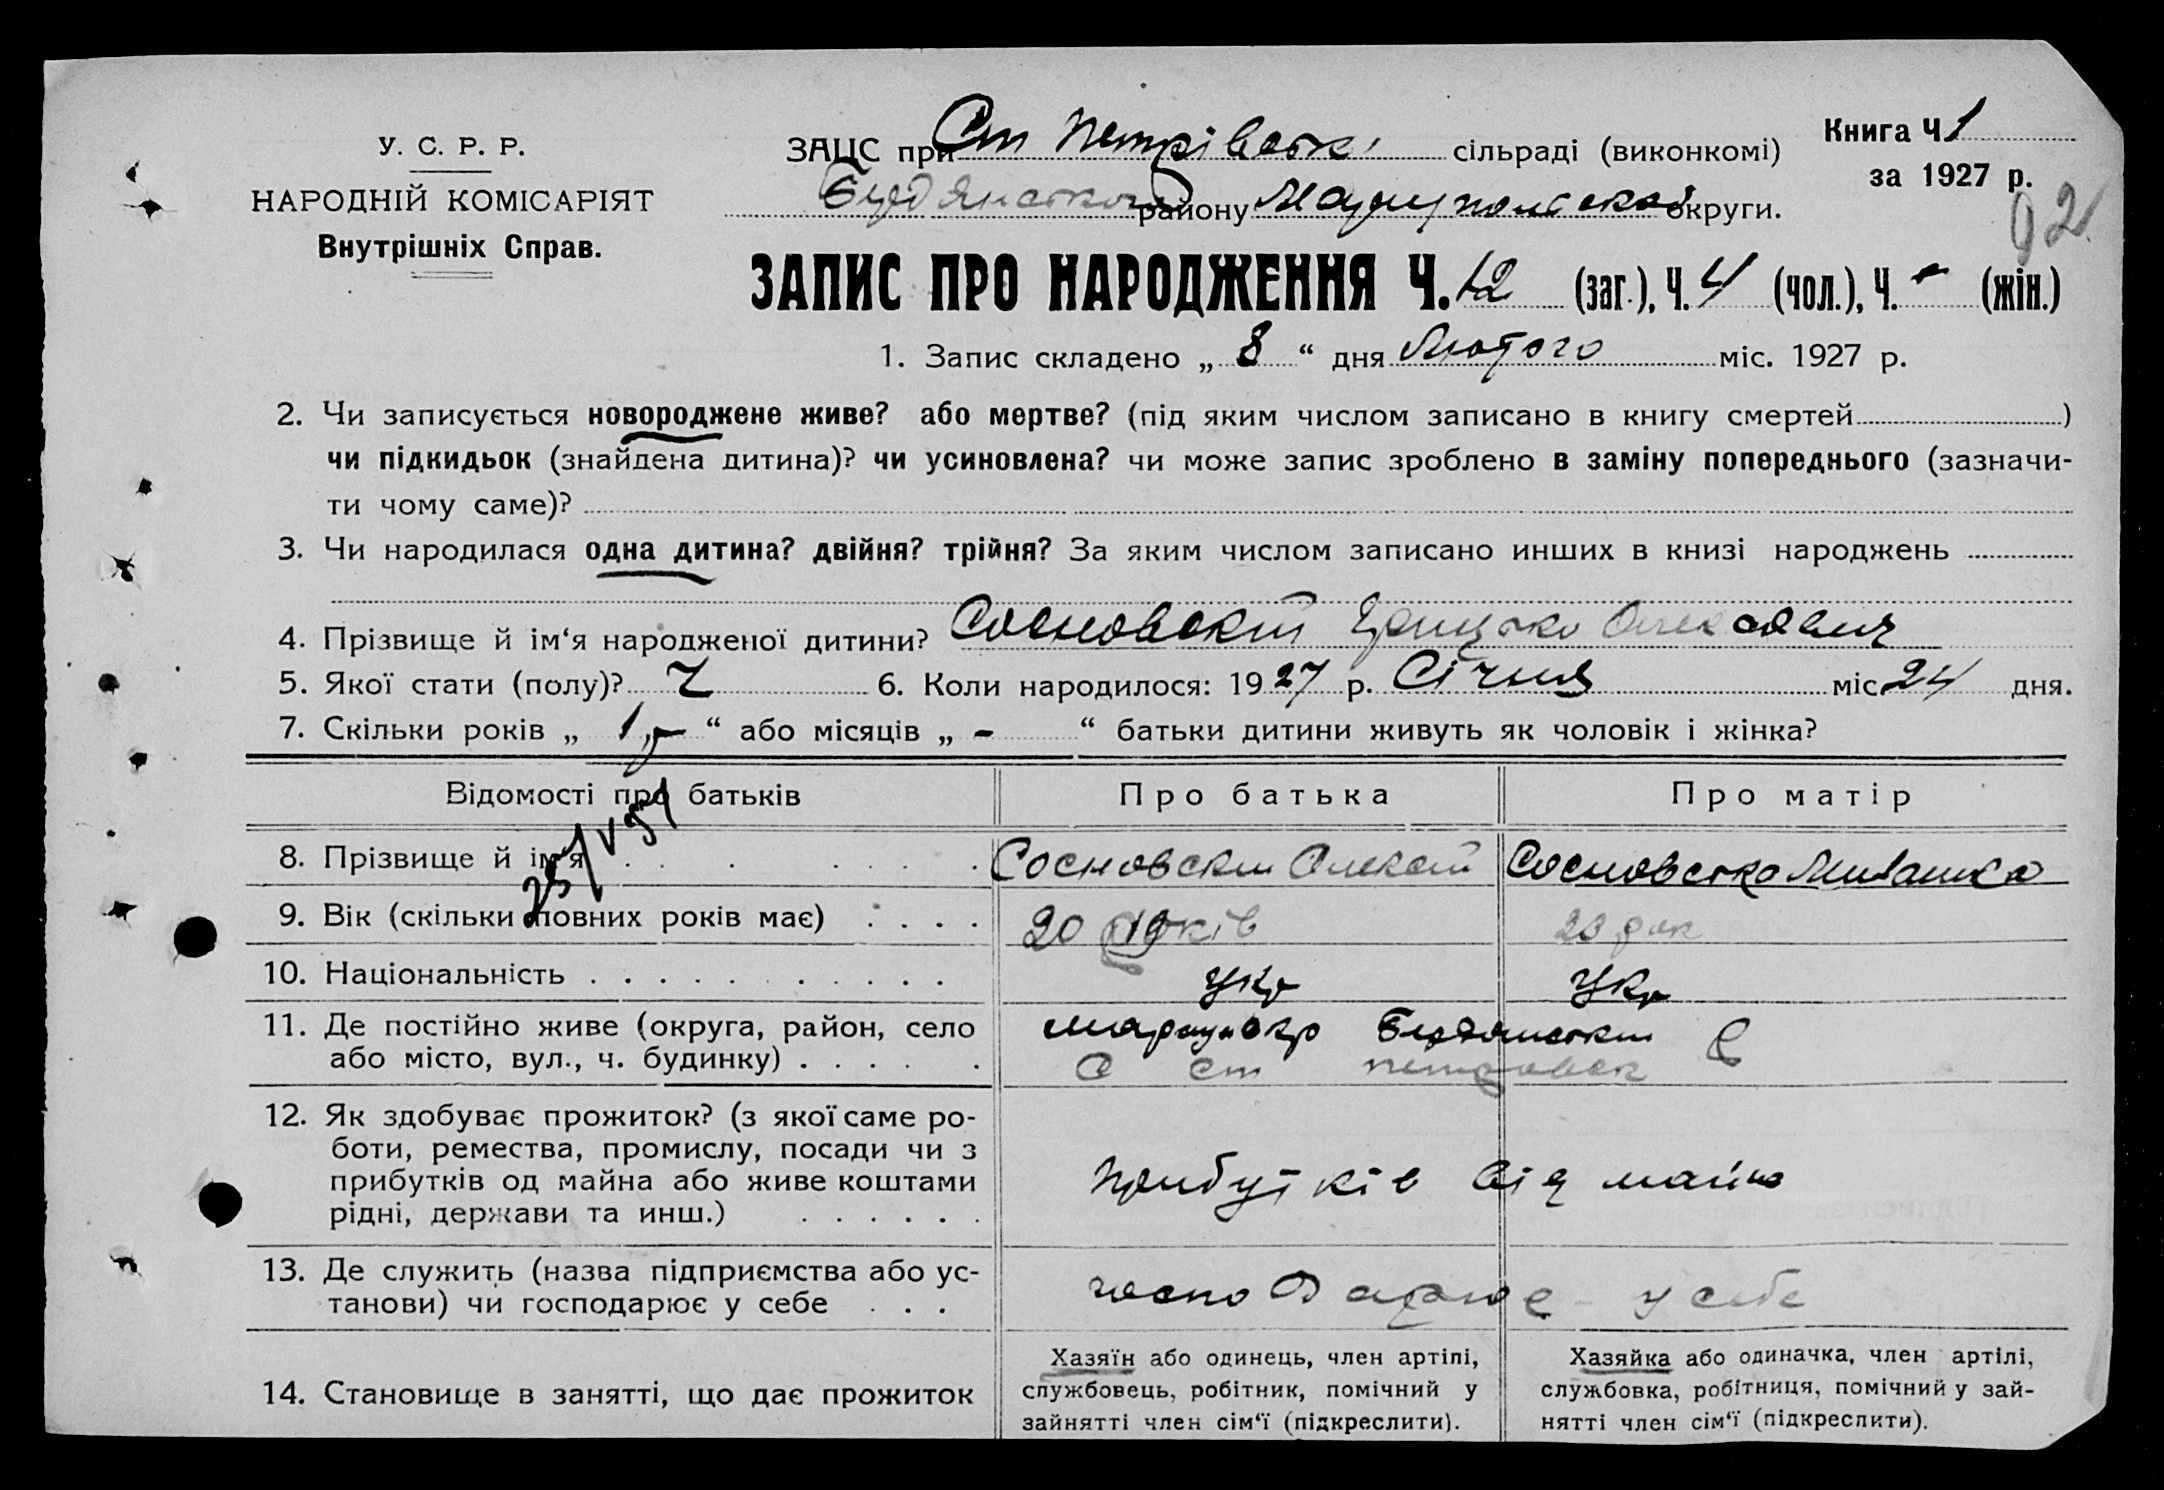 У. С. Р. Р.
НАРОДНІЙ КОМІСАРІЯТ
Внутрішніх Справ.
ЗАЦС при Ст Петрівськ. сільраді (виконкомі)
Бердянського району Маріупольської округи.
Книга Ч 1
за 1927 р.
92
ЗАПИС ПРО НАРОДЖЕННЯ Ч. 12 (заг.), Ч. 4 (чол.), Ч. - (жін.)
1. Запис складено „ 8 “ дня Лютого міс. 1927 р.
2. Чи записується новороджене живе? або мертве? (під яким числом записано в книгу смертей )
чи підкидьок (знайдена дитина)? чи усиновлена? чи може запис зроблено в заміну попереднього (зазначи-
ти чому саме)?
3. Чи народилася одна дитина? двійня? трійня? За яким числом записано инших в книзі народжень
4. Прізвище й ім‘я народженої дитини? Сосновский Грицько
5. Якої стати (полу)? Ч 6. Коли народилося: 1927 р. Січня міс 24 дня.
7. Скільки років „ 1 “ або місяців „ - “ батьки дитини живуть як чоловік і жінка?
Відомості про батьків Про батька Про матір
8. Прізвище й ім‘я Сосновский Олексій
9. Вік (скільки повних років має) 20 років
10. Національність Укр Укр
11. Де постійно живе (округа, район, село
або місто, вул., ч. будинку) Бердянський
С Ст Петровск
12. Як здобуває прожиток? (з якої саме ро-
боти, ремества, промислу, посади чи з
прибутків од майна або живе коштами
рідні, держави та инш.) Прибутків від майна
13. Де служить (назва підприємства або ус-
танови) чи господарює у себе господарює у себе
14. Становище в занятті, що дає прожиток
Хазяїн або одинець, член артілі,
службовець, робітник, помічний у
зайнятті член сім‘ї (підкреслити).
Хазяйка або одиначка, член артілі,
службовка, робітниця, помічний у зай-
нятті член сім‘ї (підкреслити).